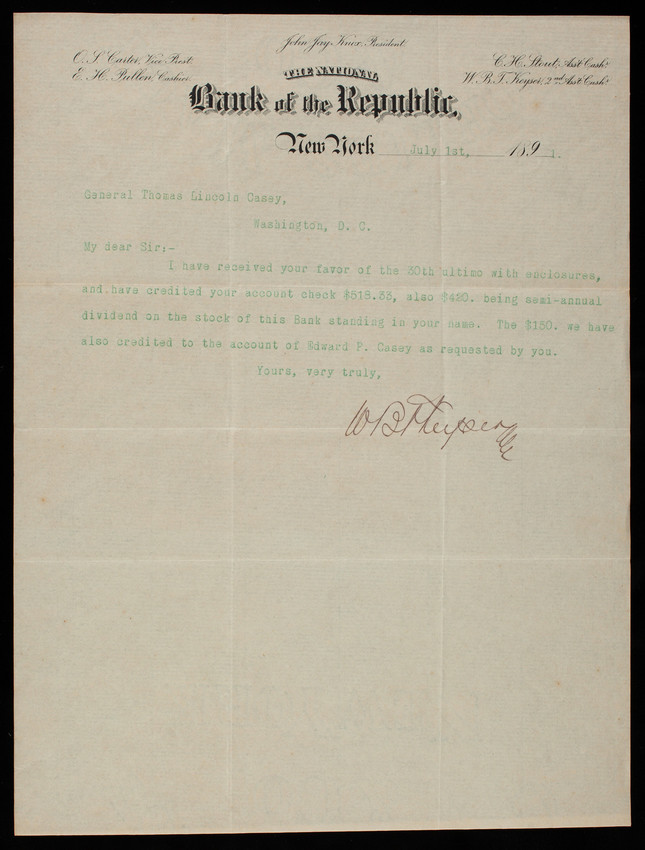 John Jay Knox, President.
O. S. Carter, Vice Prest.
E. H. Pullen, Cashier.
C. H. Stout, Asst. Cashr.
W. B. T. Keyser, 2nd Asst. Cashr.
THE NATIONAL
Bank of the Republic,
New York July 1st, 1891.
General Thomas Lincoln Casey,
Washington, D. C.
My dear Sir:-
I have received your favor of the 30th ultimo with enclosures,
and have credited your account check $518.33, also $420. being semi-annual
dividend on the stock of this Bank standing in your name. The $150. we have
also credited to the account of Edward P. Casey as requested by you.
Yours, very truly,
W B T Keyser